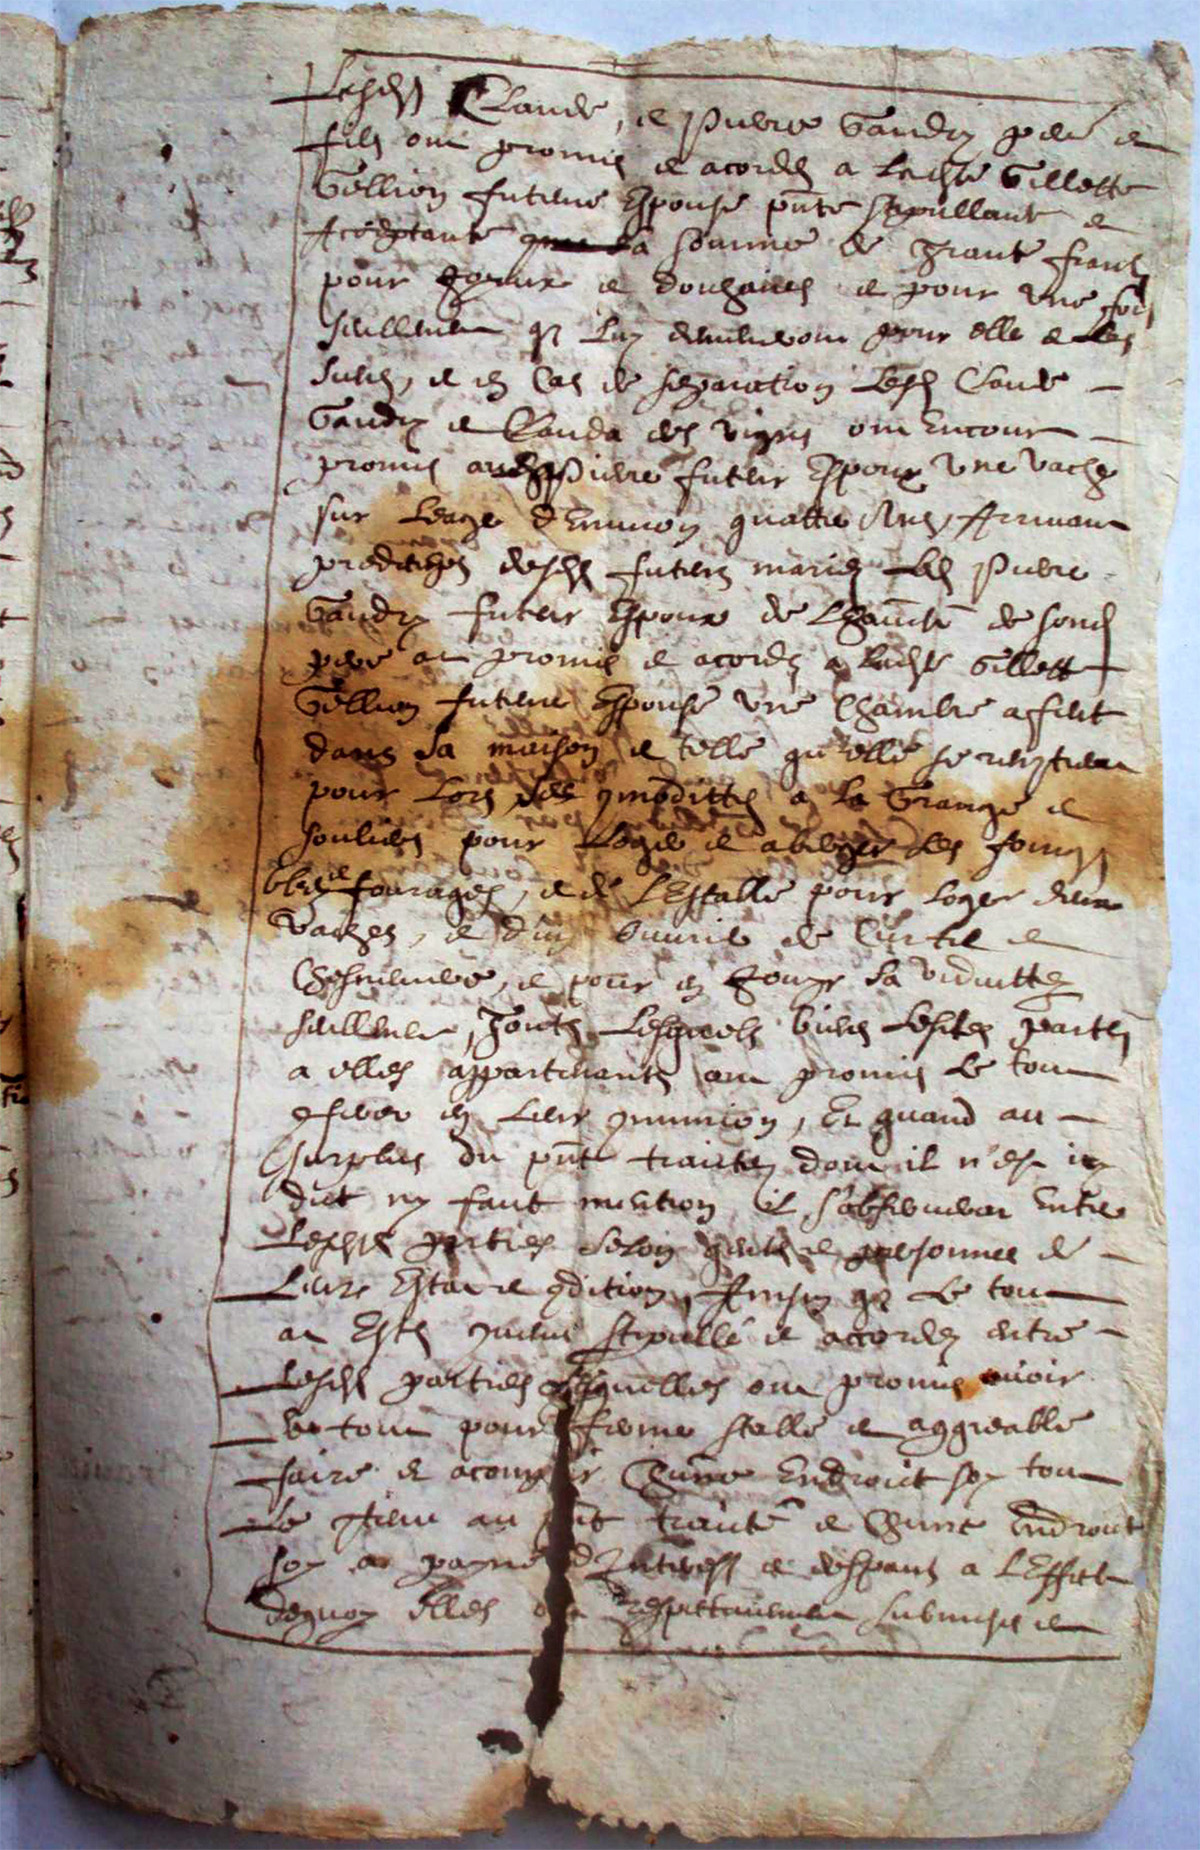 Lesdts Claude, et Pierre Gaudry pere et
fils ont promis et acordes a ladte Gillette
Gellion future Espouse pnte stipullante et
Acceptante la somme de Trante frans
pour Joyaux et douhaires et pour une fois
seullement qz luy demeureront pour elle et les
siens, et en Cas de separation lesd Claude
Gaudry et Clauda des vignes ont Encour
promis aud Pierre futur Espoux une vache
sur leage d'Environ quattre Ans,
predittes desdts futurs maries led Pierre
Gaudry futur Espoux de Lhautte de sond
pere at promis et acordes a ladte Gillette
Gellion future Espouse une Chambre
dans sa maison et telle qu'elle se
pour lors, a la Grange et
soulier pour loger et les foings
bledz et fourages, et de l'Estable pour loger deux
vaches, et d'un ouvrie de Curtil et
Cheneviere, et pour en Jouyr sa viduitte
seullement, Touts lesquels biens lesdtes parties
a elles appartenants ont promis le tout
en leur, Et quand au
surplus du pnt traitte dont il n'est icy
dict ny faict mention il s'observerat Entre
lesdts parties selon gents et personnes de
leurs Estat et qdition, Ainsin qz le tout
at Este stipullé et accordez entre
lesdts parties lesquelles ont promis avoir
le tout pour ferme stable et aggreable
faire et acomplir Chune Endroit soy tout
le au pnt traitte et Chune Endroit
soy a payne d'Interestz et despans a L'Effect
dequoy Elles ont respectivement submises et